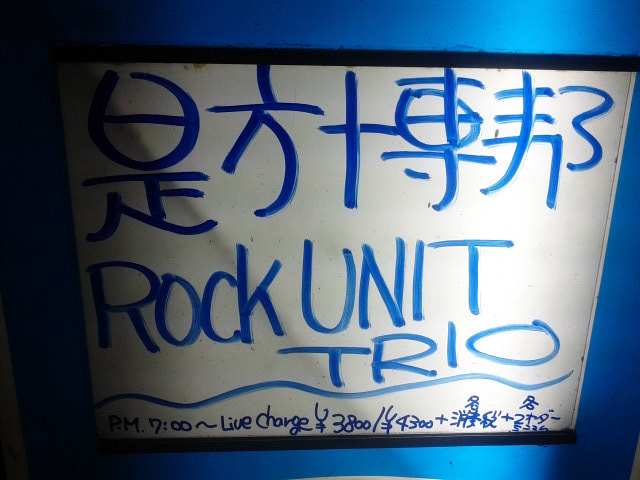 是方博邦
ROCK UNIT
TRIO
P.M. 7:00～Live charge ¥3800/¥4300+各消費税+各2オーダー